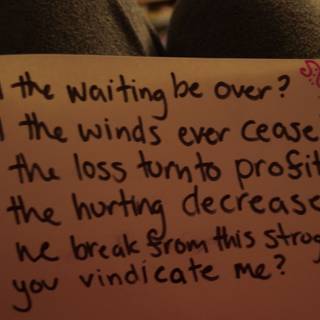 the waiting be over?
the winds ever cease
the loss turn to profit
the hurting decrease
we break from this
you vindicate me?